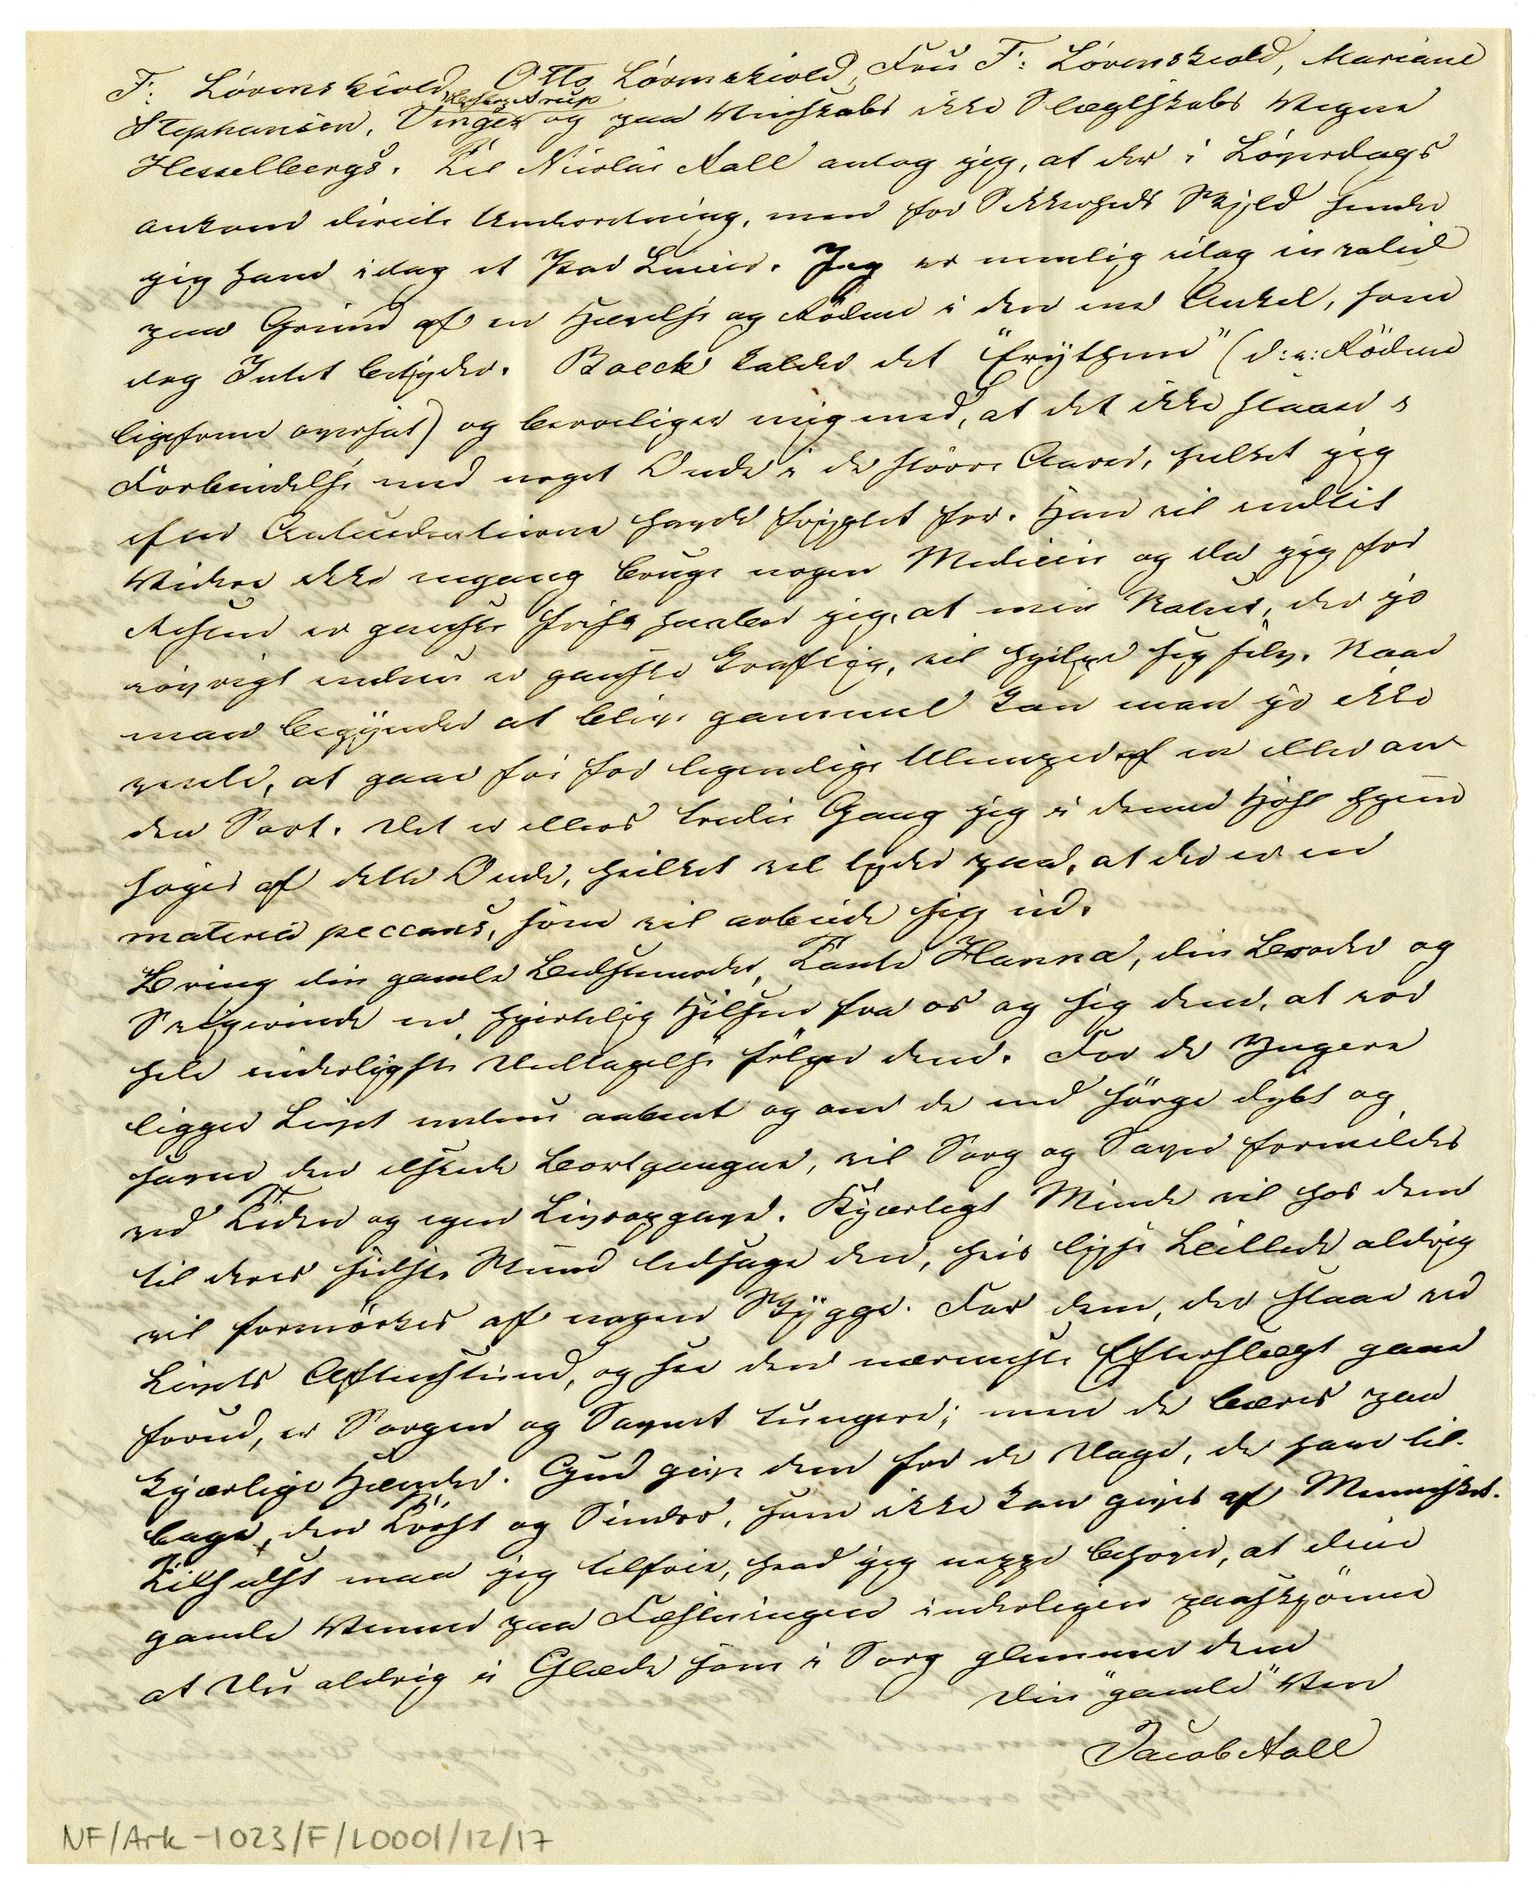 F: Løvenskiold, Otto Løvenskiold, Fru F: Løvenskiold, Mariane
Stephansen, Vinger og paa Venskabs ikke Slægtskabs Vegne
Hesselbergs. Til Nicolai Aall antog jeg, at der i Løverdags
ankom directe Underretning, men for Sikkerheds Skyld sendte
jeg ham idag et Par Linier. Jeg er nemlig idag invalid
paa Grund af en Hævelse og Rödme i den ene Ankel, som
dog Intet betyder. Boeck kalder det "Erythem" (d: e: Rödme
ligefrem oversat) og beroliger mig med, at det ikke staaer i
Forbindelse med noget Onde i de större Aarer, hvilket jeg
efter Antecedentierne havde frygtet for. Han vil indtil
Videre ikke engang bruge nogen Medicin og da jeg for
Resten er ganske frisk haaber jeg, at min Natur, der jo
iøvrigt endnu er ganske kraftig, vil hjelpe sig selv. Naar
man begynder at blive gammel kan man jo ikke
vente, at gaae fri for legemlige Ulemper af en eller an-
den Sort. Det er ellers tredie Gang jeg i denne Höst hjem
søges af dette Onde, hvilket vel tyder paa, at der er en
materia peccans, som vil arbeide sig ud.
Bring din gamle Bedstemoder, Tante Hanna, din Broder og
Svigerinde en hjertelig Hilsen fra os og sig dem, at vor
hele inderligste Deeltagelse fölger dem. For de Yngere
ligger Livet endnu aabent og om de end sörge dybt og
savne den elskede Bortgangne, vil Sorg og Savn formildes
ved Tiden og egen Livsopgave. Kjærligt Minde vil hos dem
til deres sidste Stund ledsage den, hvis lyse Billede aldrig
vil formörkes af nogen Skygge. For dem, der staae ved
Livets Aftenstund, og see den nærmeste Efterslægt gaae
forud, er Sorgen og Savnet tungere; men de bæres paa
kjærlige Hænder. Gud give dem for de Dage, de have til-
bage, den Tröst og Lindring, som ikke kan gives af Mennesker.
Tilsidst maa jeg tilföie, hvad jeg neppe behöver, at dine
gamle Venner paa Fæstningen inderligen paaskjönne
at Du aldrig i Glæde som i Sorg glemmer dem
Din "gamle" Ven
Jacob Aall
NF/Ark-1023/F/L0001/12/17